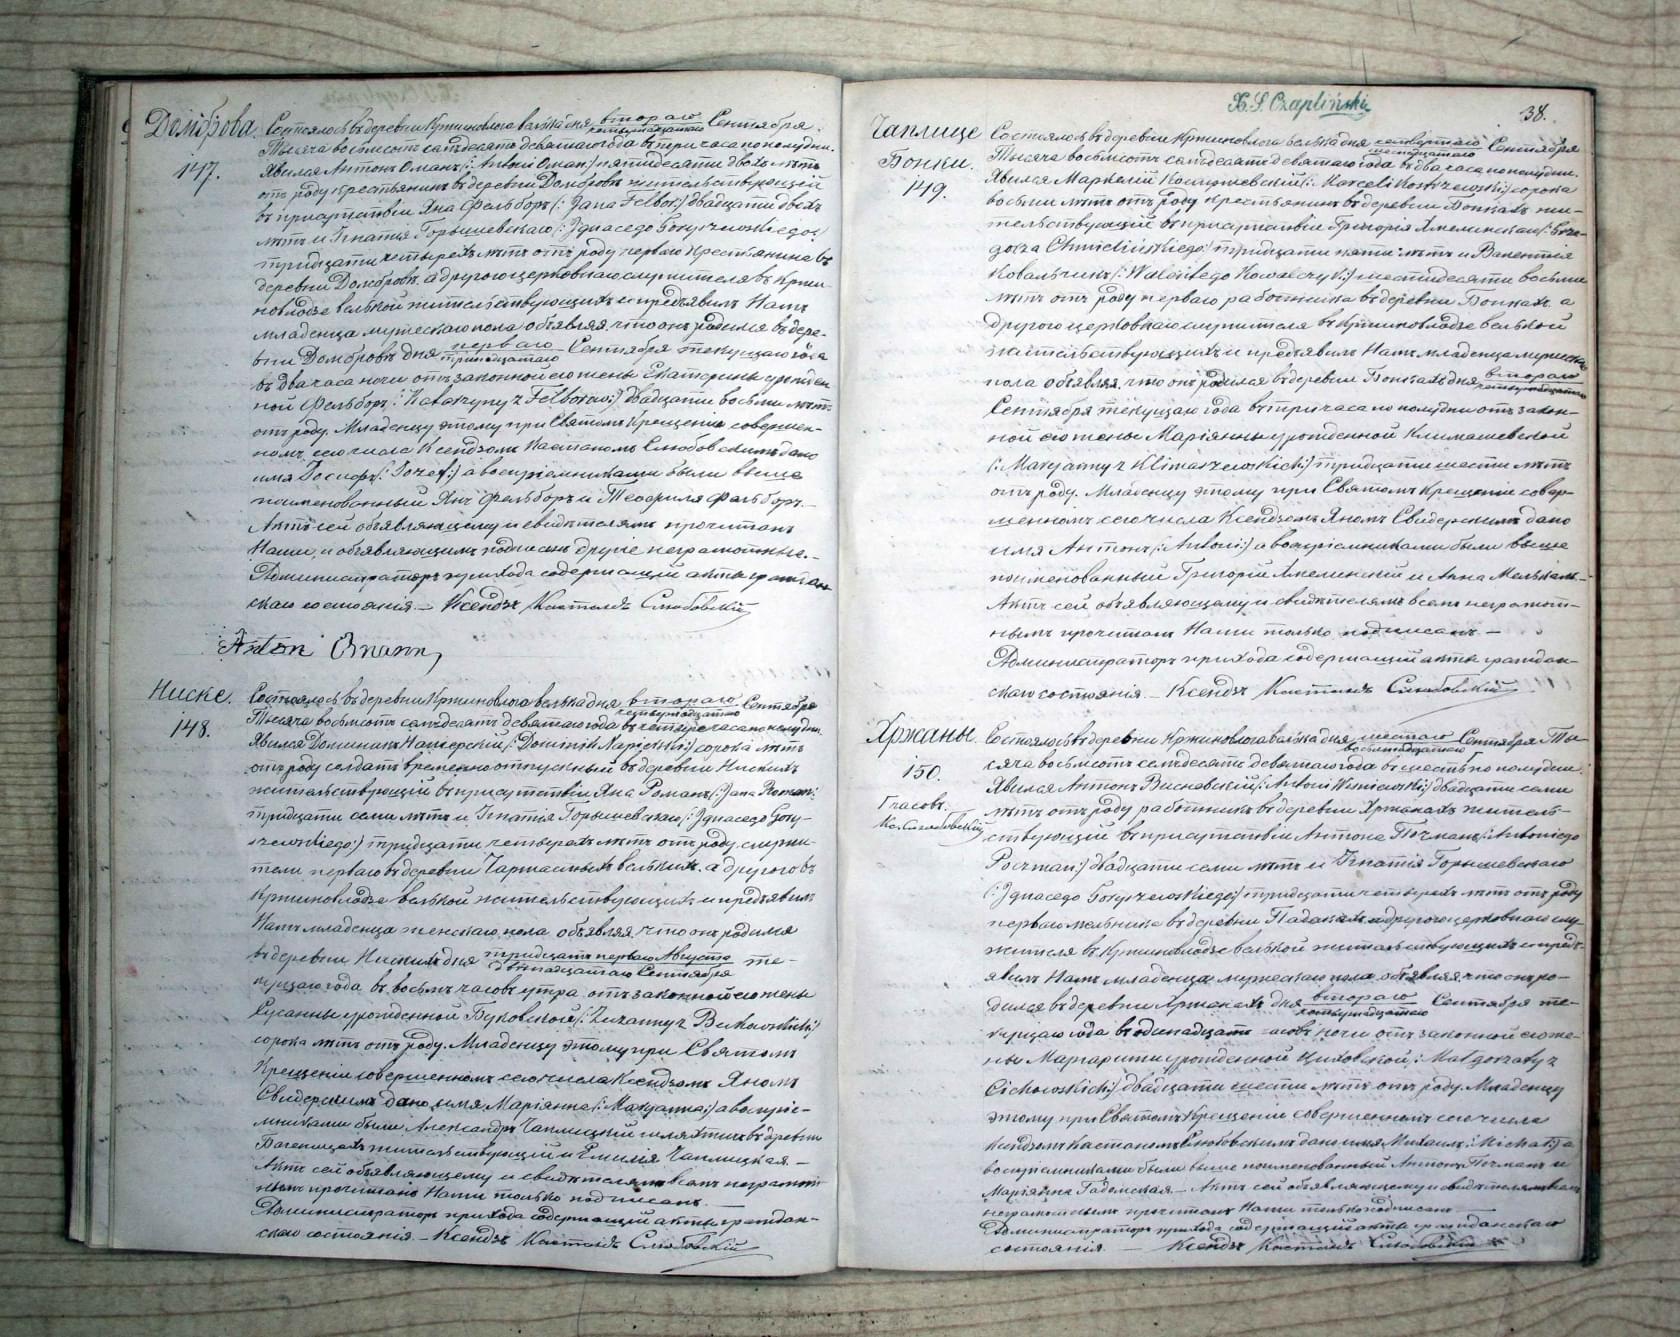 X. S. Czapliński
38.
Домброва.
147.
Состоялось въ деревни Кржиновлога велька дня втораго / четырнадцатаго Сентября
Тысяча восемьсотъ семьдесятъ девятаго года въ три часа по полудни.
Явился Антонъ Оманъ (: Antoni Oman :) пятидесяти двохъ лѣтъ
отъ роду крестьянинъ въ деревни Домбровѣ жительствующій
въ присутствіи Яна Фельборъ (: Jana Felbor :) двадцати двохъ
лѣтъ и Игнатія Горышевскаго (: Ignacego Goryszewskiego :)
тридцати четырехъ лѣтъ отъ роду перваго крестьянина въ
деревни Домбровѣ, а другого церковнаго служителя въ Кржи-
новлодзе велькой жительствующихъ и предъявилъ Намъ
младенца мужескаго пола объявляя, что онъ родился въ дере-
вни Домбровѣ дня перваго / тринадцатаго Сентября текущаго года
въ два часа ночи отъ законной его жены Екатерины урожден-
ной Фельборъ (: Katarzyny z Felborow :) двадцати восьми лѣтъ
отъ роду. Младенцу этому при Святомъ Крещеніи совершен-
номъ сего числа Ксендзомъ Каетаномъ Слюбовскимъ дано
имя Іосифъ (: Józef :) а воспріемниками были выше
поименованный Янъ Фельборъ и Теофиля Фельборъ. —
Актъ сей объявляющему и свидѣтелямъ прочитанъ
Нами и объявляющимъ подписанъ другіе неграмотные. —
Администраторъ прихода содержащій акты граждан-
скаго состоянія. — Ксендзъ Каетанъ Слюбовскій
Antoni Omann,
Ниске.
148.
Состоялось въ деревни Кржиновлога велька дня втораго / четырнадцатаго Сентября
Тысяча восемьсотъ семьдесятъ девятаго года въ четыре часа по полудни.
Явился Доминикъ Напюрскій (: Dominik Napiórski :) сорока лѣтъ
отъ роду солдатъ временно отпускный въ деревни Нискихъ
жительствующій въ присутствіи Яна Романъ (: Jana Roman :)
тридцати семи лѣтъ и Игнатія Горышевскаго (: Ignacego Gory-
szewskiego :) тридцати четырехъ лѣтъ отъ роду, служи-
тели перваго въ деревни Чаркастыхъ велькихъ, а другого въ
Кржиновлодзе велькой жительствующихъ и предъявилъ
Намъ младенца женскаго пола объявляя, что онъ родился
въ деревни Нискихъ дня тридцать перваго Августа / двѣнадцатаго Сентября те-
кущаго года въ восемь часовъ утра отъ законной его жены
Сусанны урожденной Буковской (: Zuzanny z Bukowskich :)
сорока лѣтъ отъ роду. Младенцу этому при Святомъ
Крещеніи совершенномъ сего числа Ксендзомъ Яномъ
Свидерскимъ дано имя Маріянна (: Maryanna :) а воспріе-
мниками были Александръ Чаплицкій шляхтичъ въ деревни
жительствующій и Емилія Чаплицкая. —
Актъ сей объявляющему и свидѣтелямъ всемъ неграмот-
нымъ прочитано Нами только подписанъ. —
Администраторъ прихода содержащій акты граждан-
скаго состоянія. — Ксендзъ Каетанъ Слюбовскій
Чаплице
Бонки.
149.
Состоялось въ деревни Кржиновлога велька дня четвертаго / шестнадцатаго Сентября
Тысяча восемьсотъ семьдесятъ девятаго года въ два часа по полудни.
Явился Марцелій (: Marceli :) сорока
восьми лѣтъ отъ роду крестьянинъ въ деревни Бонкахъ жи-
тельствующій въ присутствіи Григорія Хмелинскаго (: Grze-
gorza Chmielińskiego :) тридцати пяти лѣтъ и Валентія
Ковальчикъ (: Walentego Kowalczyk :) шестидесяти восьми
лѣтъ отъ роду перваго работника въ деревни Бонкахъ а
другого церковнаго служителя въ Кржиновлодзе велькой
жительствующихъ и предъявилъ Намъ младенца мужескаго
пола объявляя, что онъ родился въ деревни Бонкахъ дня втораго / четырнадцатаго
Сентября текущаго года въ три часа по полудни отъ закон-
ной его жены Маріянны урожденной Климашевской
(: Maryanny z Klimaszewskich :) тридцати шести лѣтъ
отъ роду. Младенцу этому при Святомъ Крещеніи совер-
шенномъ сего числа Ксендзомъ Яномъ Свидерскимъ дано
имя Антонъ (: Antoni :) а воспріемниками были выше
поименованный Григорій Хмелинскій и Анна —
Актъ сей объявляющему и свидѣтелямъ всемъ неграмот-
нымъ прочитанъ Нами только подписанъ. —
Администраторъ прихода содержащій акты граждан-
скаго состоянія. — Ксендзъ Каетанъ Слюбовскій
Хржаны.
150.
Состоялось въ деревни Кржиновлога велька дня шестаго / восемнадцатаго Сентября Ты-
сяча восемьсотъ семьдесятъ девятаго года въ шесть по полудни.
Явился Антонъ Висневскій (: Antoni Wisniewski :) двадцати семи
лѣтъ отъ роду работникъ въ деревни Хржанахъ житель-
ствующій въ присутствіи Антона Почманъ (: Antoniego
Poczman :) двадцати семи лѣтъ и Игнатія Горышевскаго
(: Ignacego Goryszewskiego :) тридцати четырехъ лѣтъ отъ роду
перваго мельника въ деревни а другого церковнаго слу-
жителя въ Кржиновлодзе велькой жительствующихъ и предъ-
явилъ Намъ младенца мужескаго пола объявляя, что онъ ро-
дился въ деревни Хржанахъ дня втораго / четырнадцатаго Сентября те-
кущаго года въ одинадцать часовъ ночи отъ законной его же-
ны Маргариты урожденной Циховской (: Małgorzaty z
Cichowskich :) двадцати шести лѣтъ отъ роду. Младенцу
этому при Святомъ Крещеніи совершенномъ сего числа
Ксендзомъ Каетаномъ Слюбовскимъ дано имя Михаилъ (: Michał :) а
воспріемниками были выше поименованный Антонъ Почманъ и
Маріянна Гадомская. — Актъ сей объявляющему и свидѣтелямъ всемъ
неграмотнымъ прочитанъ Нами только подписанъ. —
Администраторъ прихода содержащій акты гражданскаго
состоянія. — Ксендзъ Каетанъ Слюбовскій
часовъ.
Кс. Слюбовскій